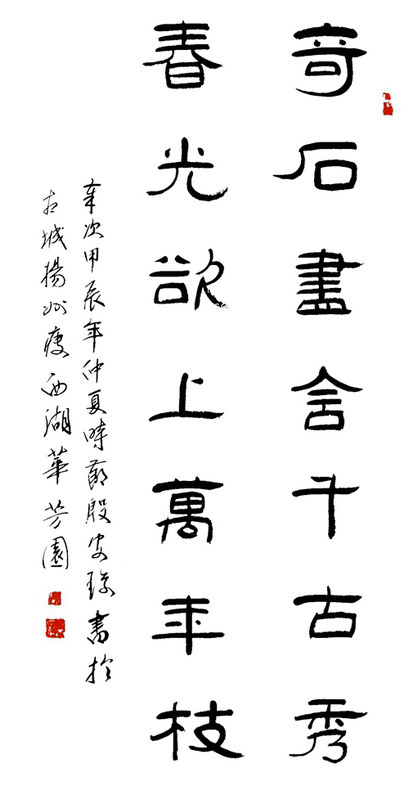 奇石盡含千古秀
春光欲上萬年枝
歲次甲辰年仲夏時節殷安書於
古城揚州瘦西湖華芳園